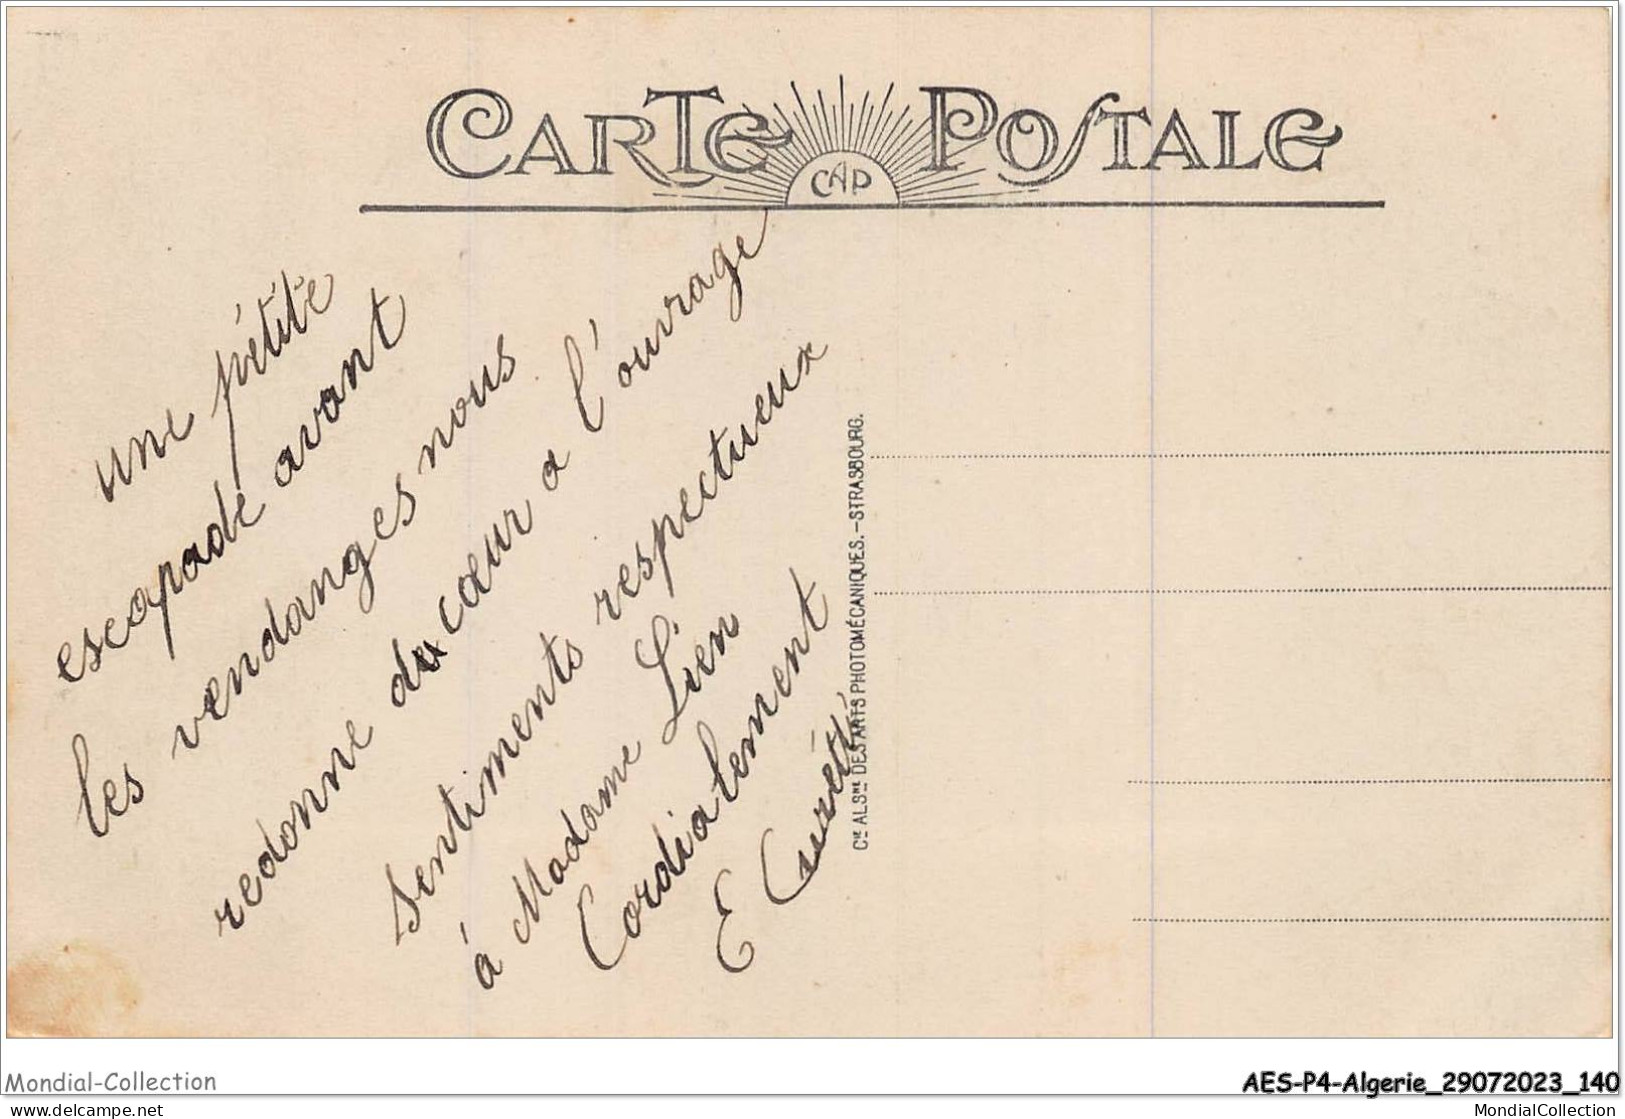 CARTE POSTALE
CAP
une pétite
escapade avant
les vendanges nous
redonne du cœur a l'ouvrage
Sentiments respectueux
à Madame Lien
Cordialement
E
Cie ALSne DES ARTS PHOTOMÉCANIQUES. - STRASBOURG.
Mondial-Collection
AES-P4-Algerie_29072023_140
www.delcampe.net
MondialCollection